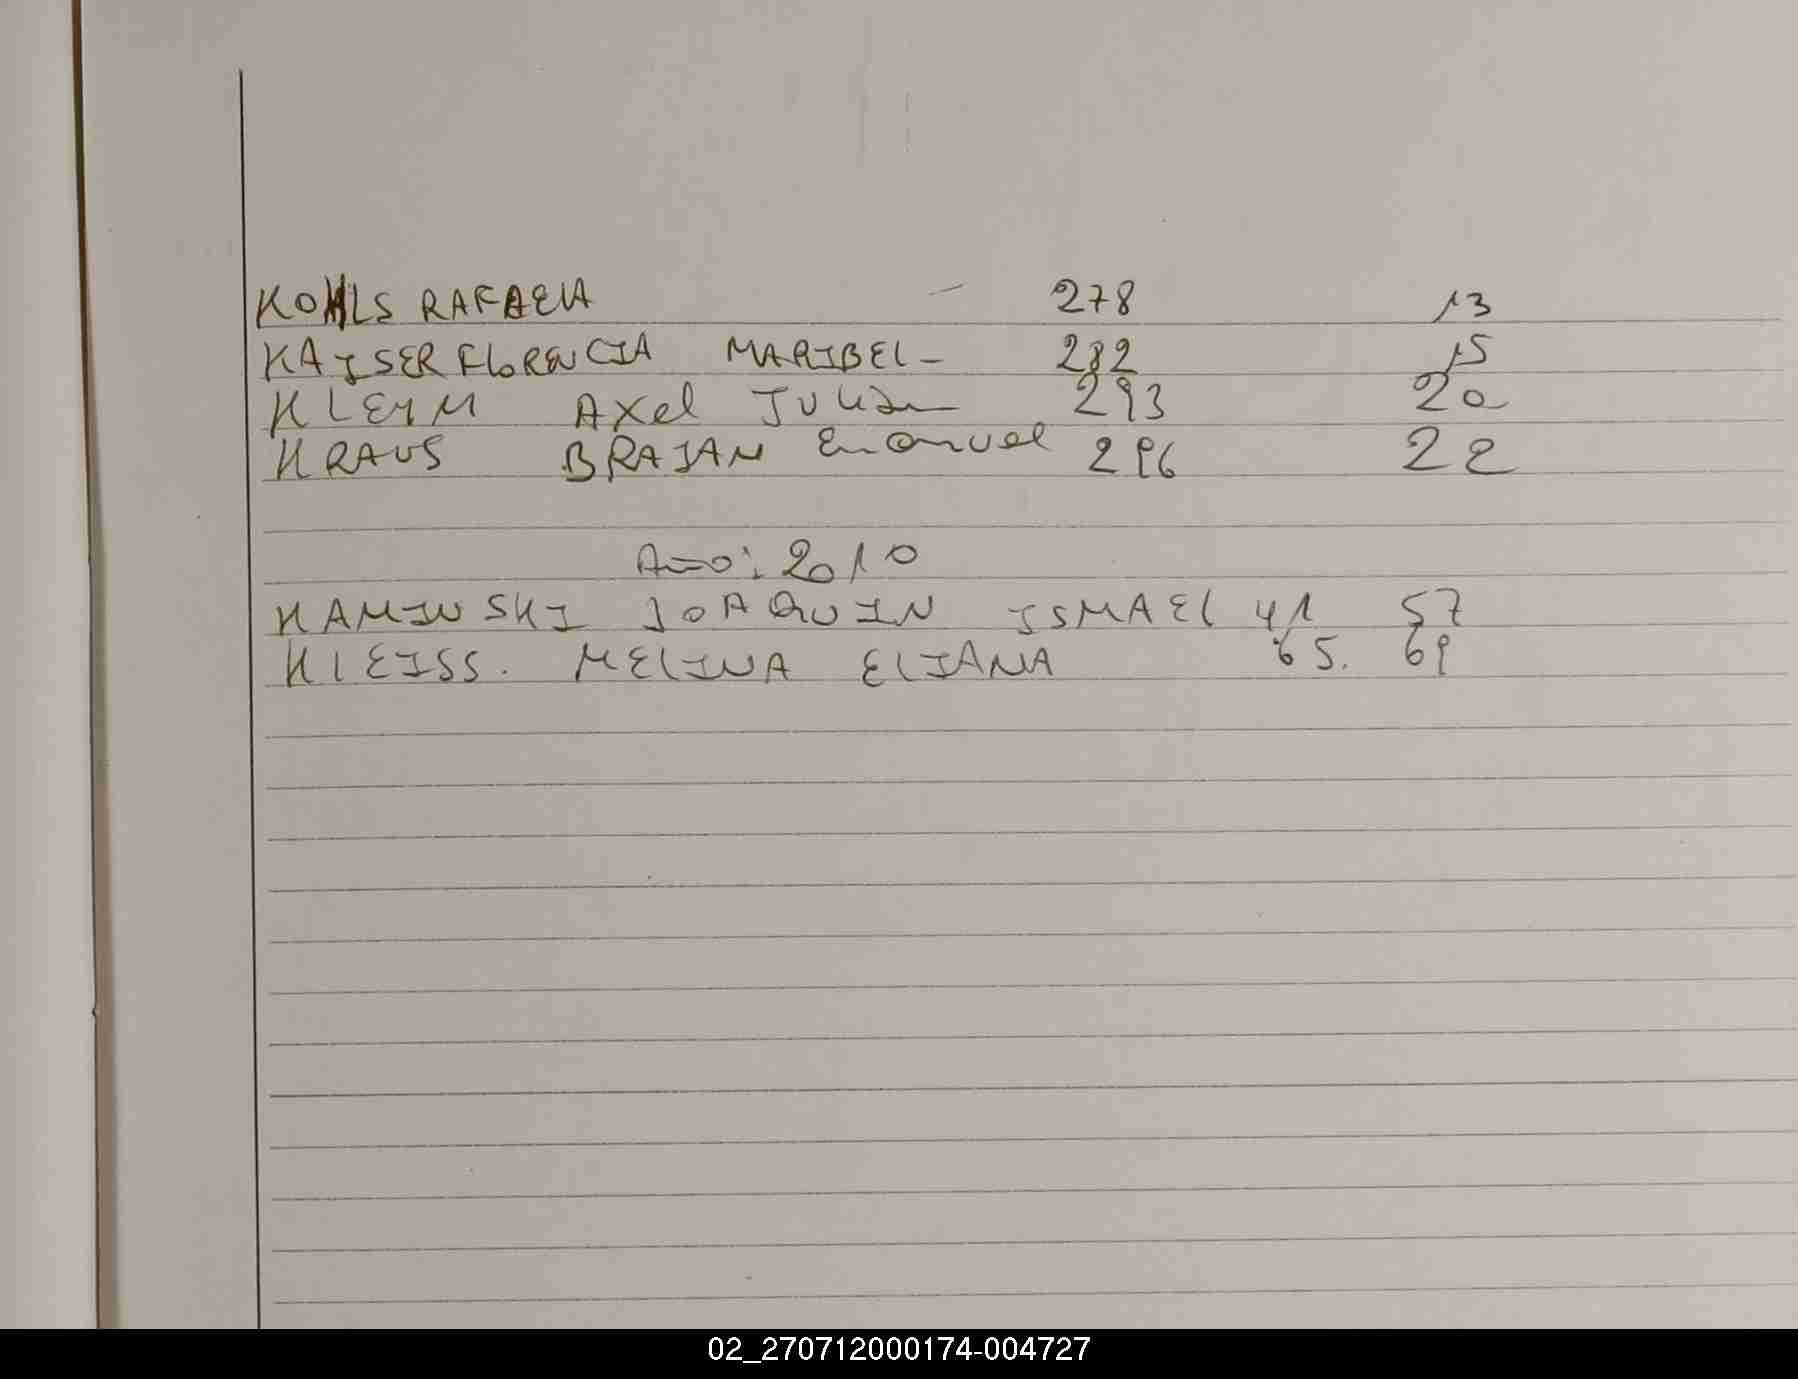 KOHLS RAFAELA – 278 13
KAISER FLORENCIA MARIBEL – 282 15
KLEYM Axel Julián 293 20
KRAUS BRAIAN Emanuel 296 22
Año: 2010
KAMINSKI JOAQUIN ISMAEL 41 57
KLEISS. MELINA ELIANA 65. 69
02_270712000174-004727